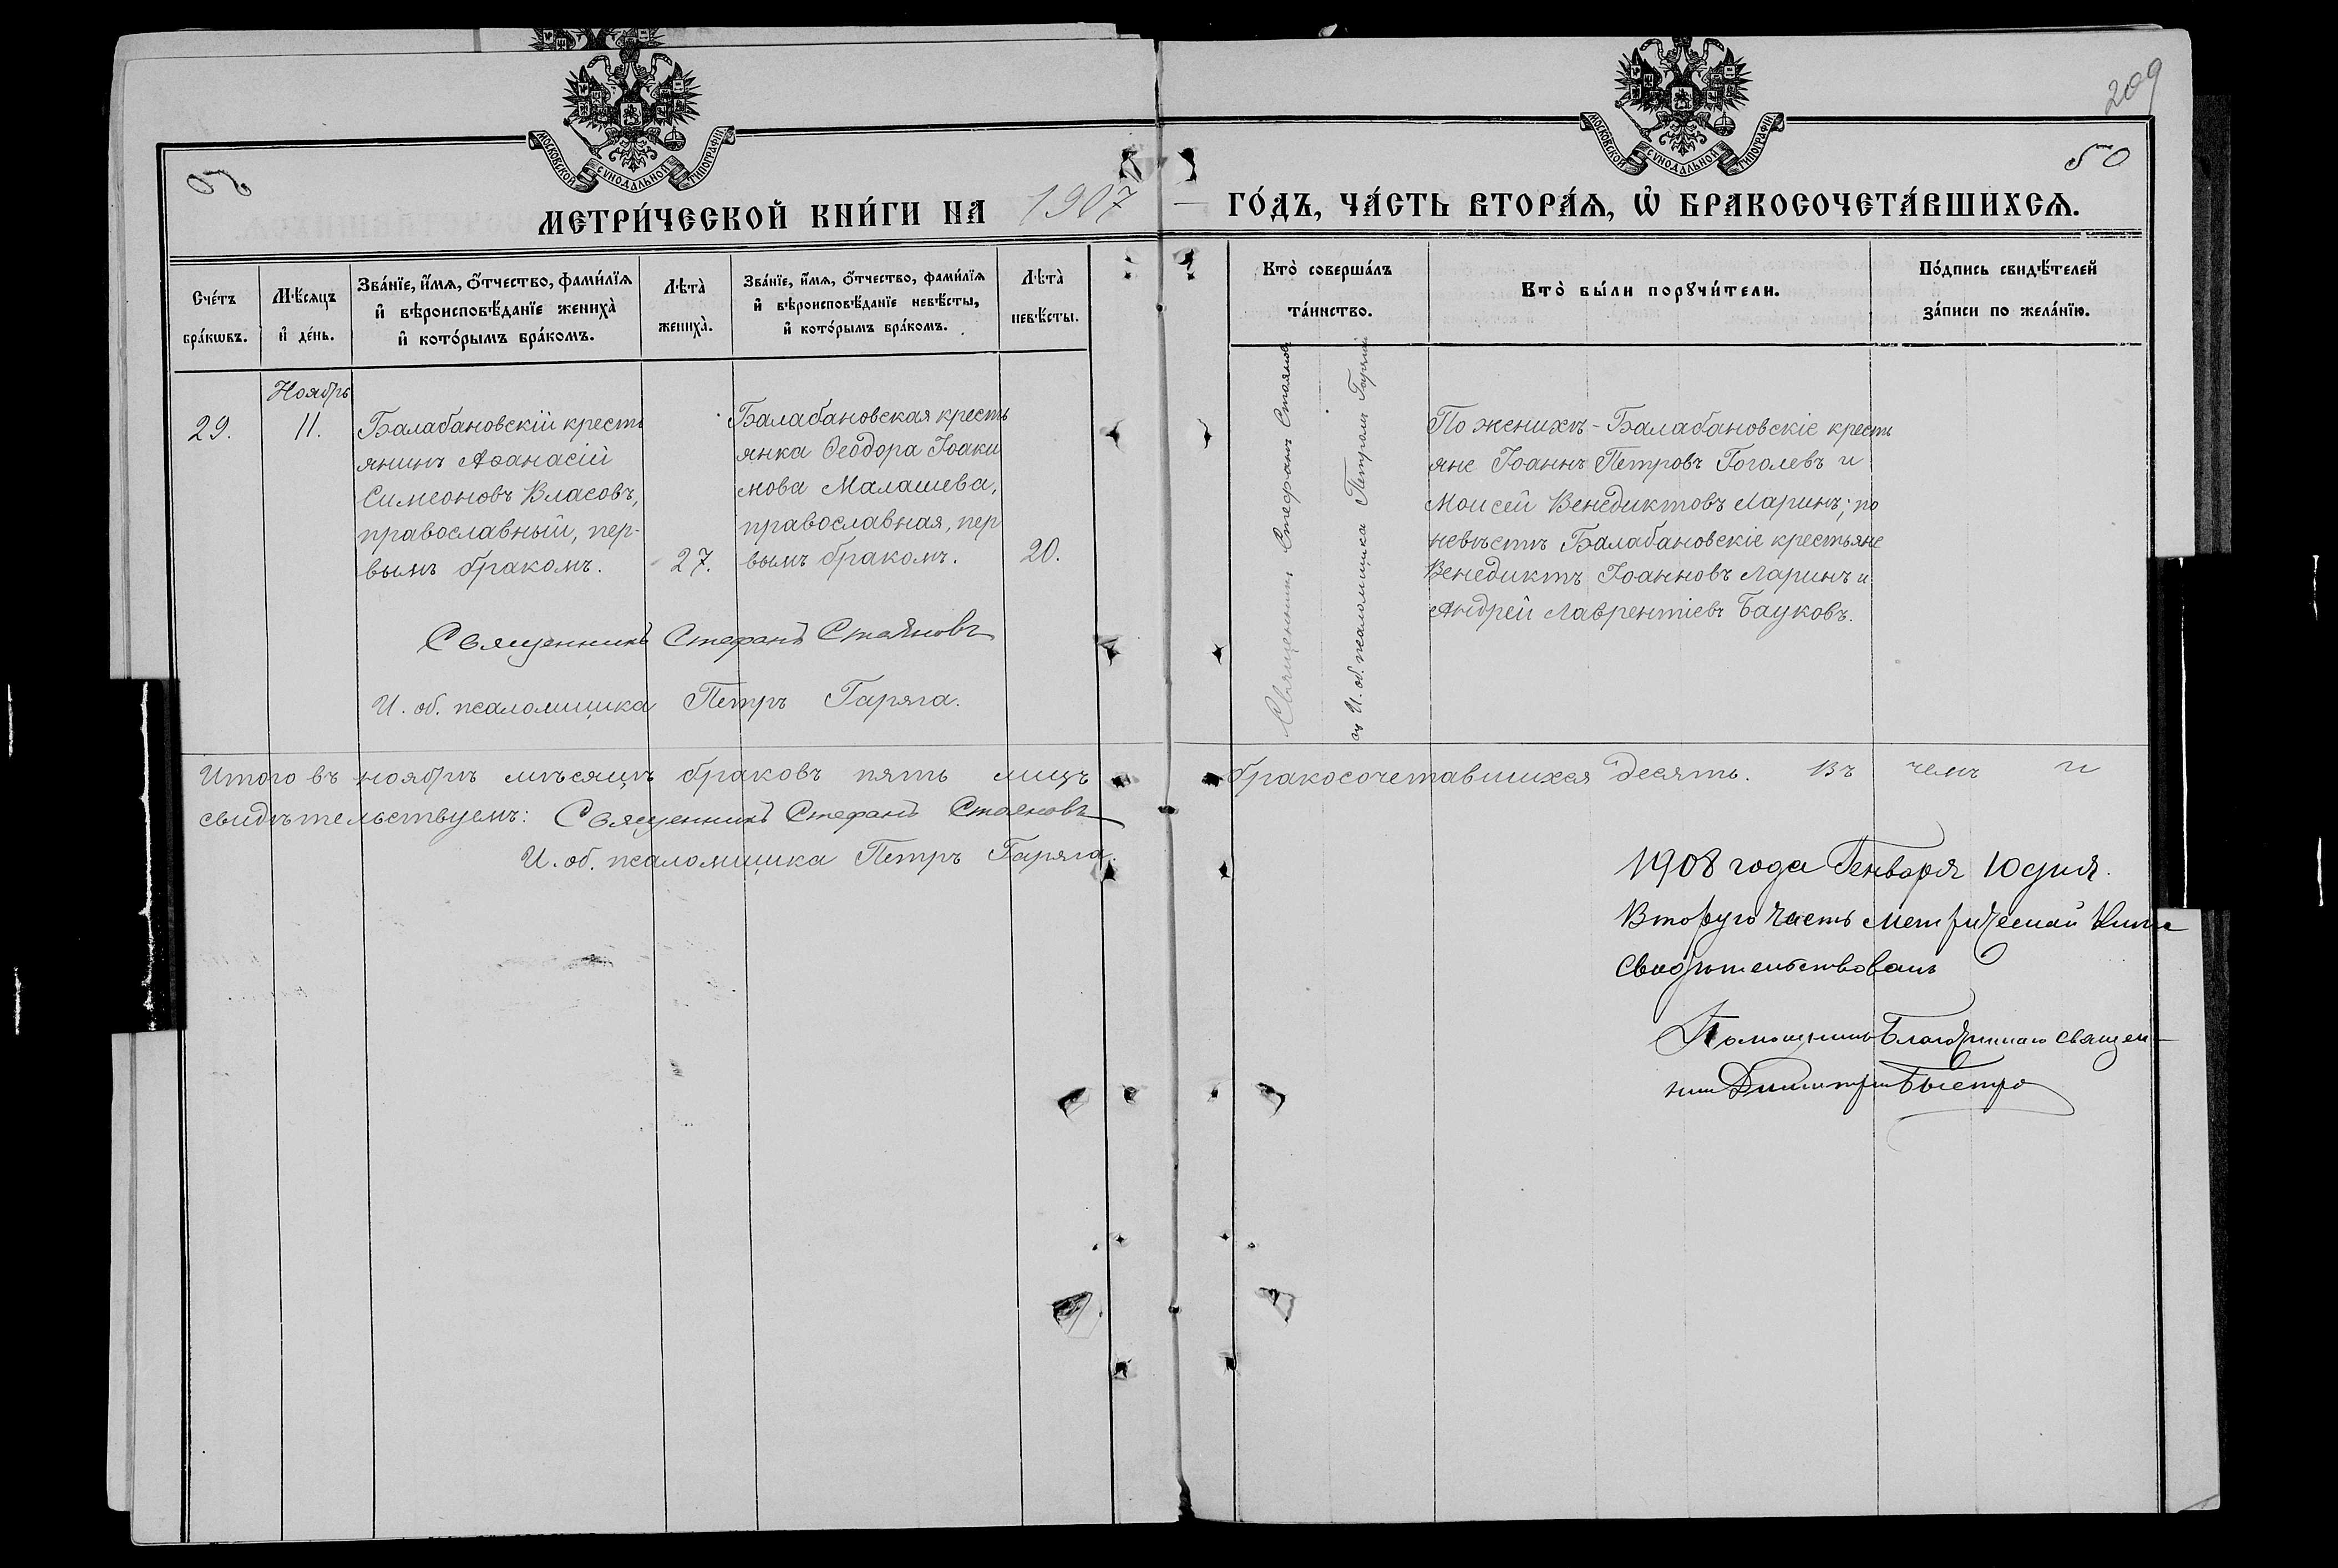 209
50
МОСКОВСКОЙ СѴНОДАЛЬНОЙ ТИПОГРАФІИ
МОСКОВСКОЙ СѴНОДАЛЬНОЙ ТИПОГРАФІИ
МЕТРИ́ЧЕСКОЙ КНИ́ГИ НА 1907 ГО́ДЪ, ЧА́СТЬ ВТОРА́Ѧ, Ѡ҆ БРАКОСОЧЕТА́ВШИХСѦ.
Сче́тъ бра́кѡвъ.
Мѣ́сяцъ и҆ де́нь.
Зва́нїе, и҆́мѧ, ѻ҆́тчество, фами́лїѧ
и҆ вѣроисповѣ́данїе жениха̀
и҆ кото́рымъ бра́комъ.
Лѣта̀ жениха̀.
Зва́нїе, и҆́мѧ, ѻ҆́тчество, фами́лїѧ
и҆ вѣроисповѣ́данїе невѣ́сты,
и҆ кото́рымъ бра́комъ.
Лѣта̀ невѣ́сты.
Кто̀ соверша́лъ
та́инство.
Кто̀ бы́ли порꙋчи́тели.
По́дпись свидѣ́телей
за́писи по жела́нїю.
Ноябрь
29.
11.
Балабановскій кресть
янинъ Аѳанасій
Симеоновъ Власовъ,
православный, пер-
вымъ бракомъ.
27.
Балабановская кресть
янка Ѳеодора Іоаки
мова Малашева,
православная, пер
вымъ бракомъ.
20.
Священникъ Стефанъ Стояновъ
И. об. псаломщика Петромъ
По женихѣ - Балабановскіе кресть
яне Іоаннъ Петровъ Гоголевъ и
Моисей Венедиктовъ Ларинъ; по
невѣстѣ Балабановскіе крестьяне
Венедиктъ Іоанновъ Ларинъ и
Андрей Лаврентіевъ Бауковъ.
Священникъ Стефанъ Стояновъ
И. об. псаломщика Петръ Гаряга.
Итого въ ноябрѣ мѣсяцѣ браковъ пять лицъ бракосочетавшихся десять. Въ чемъ и
свидѣтельствуемъ: Священникъ Стефанъ Стояновъ
И. об. псаломщика Петръ Гаряга.
1908 года Генваря 10 дня.
Вторую часть метрической книги
свидѣтельствовалъ
Помощникъ Благочиннаго Священ-
никъ Димитрій